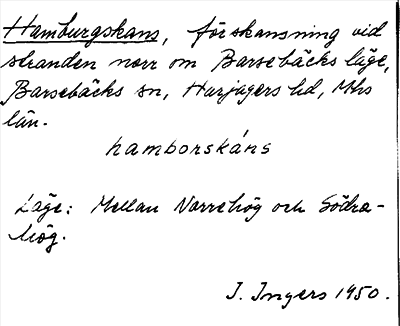 Hamburgskans, förskansning vid
stranden norr om Barsebäcks läge,
Barsebäcks sn, Harjagers hd, Mhs
län.
hamborskáns
Läge: Mellan Norrehög och Södra-
hög.
I. Ingers 1950.